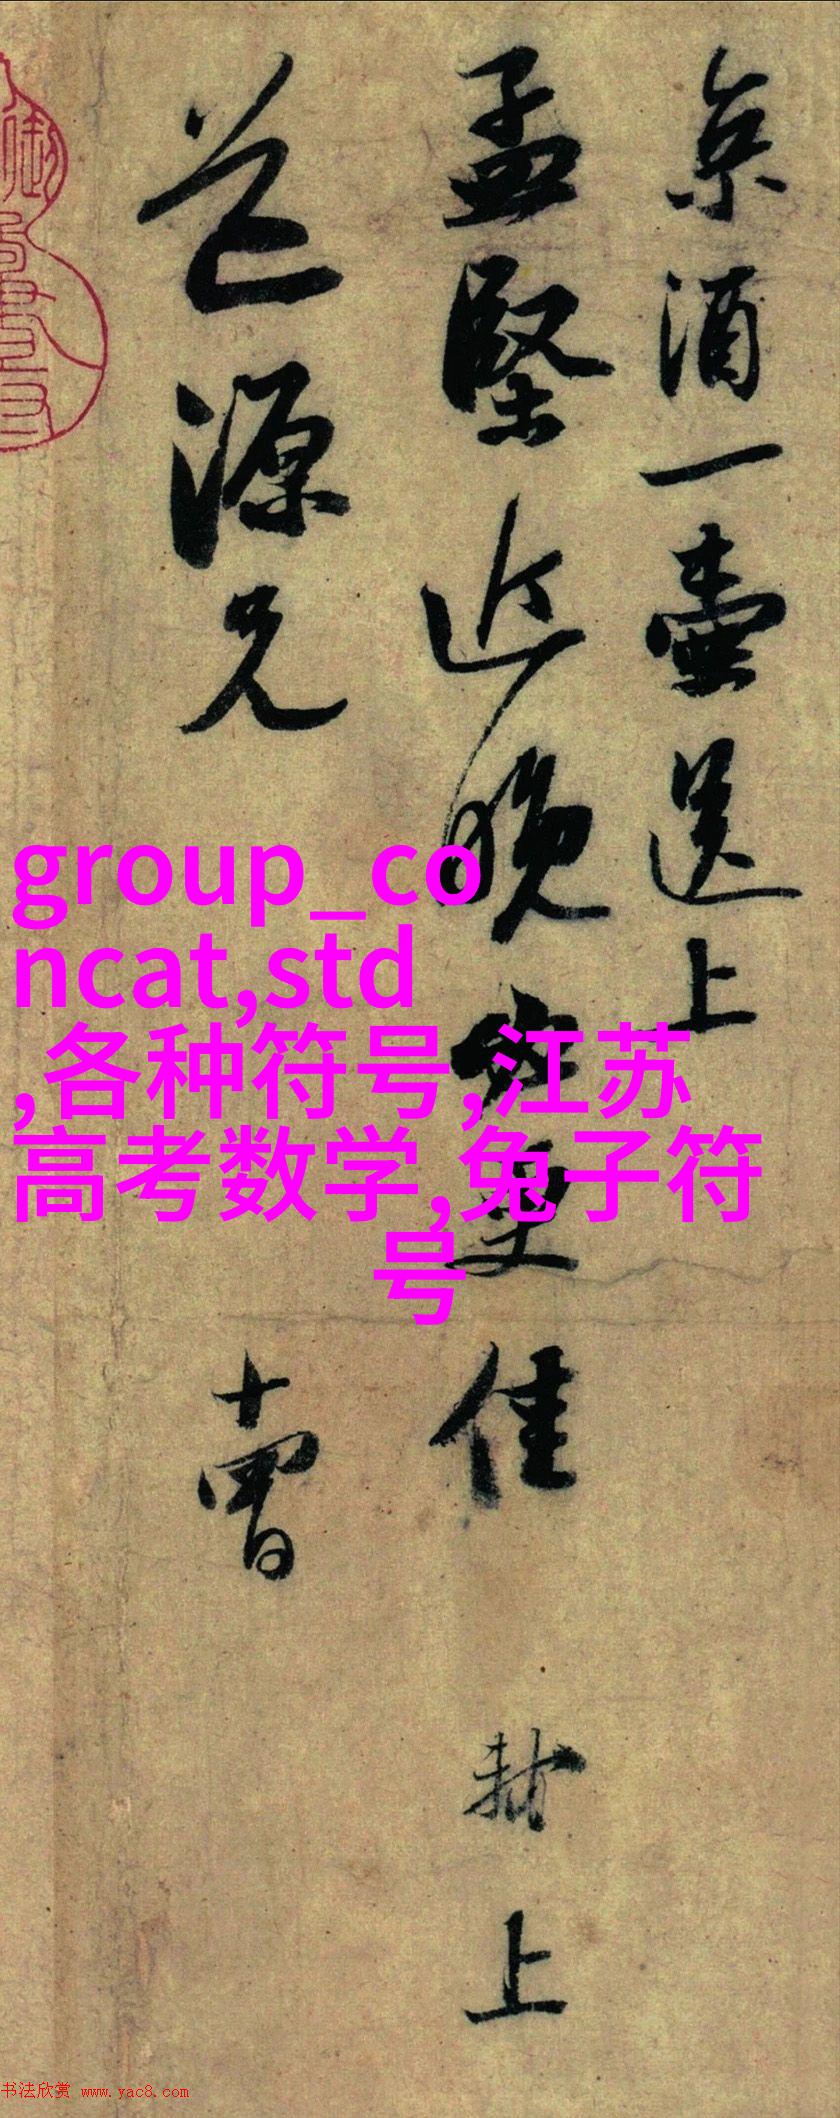 京酒一壺送上
孟堅近晚必更佳
黻上
道源兄
十曹
group_co
ncat,std
,各种符号,江苏
高考数学,兔子符
号
书法欣赏 www.yac8.com